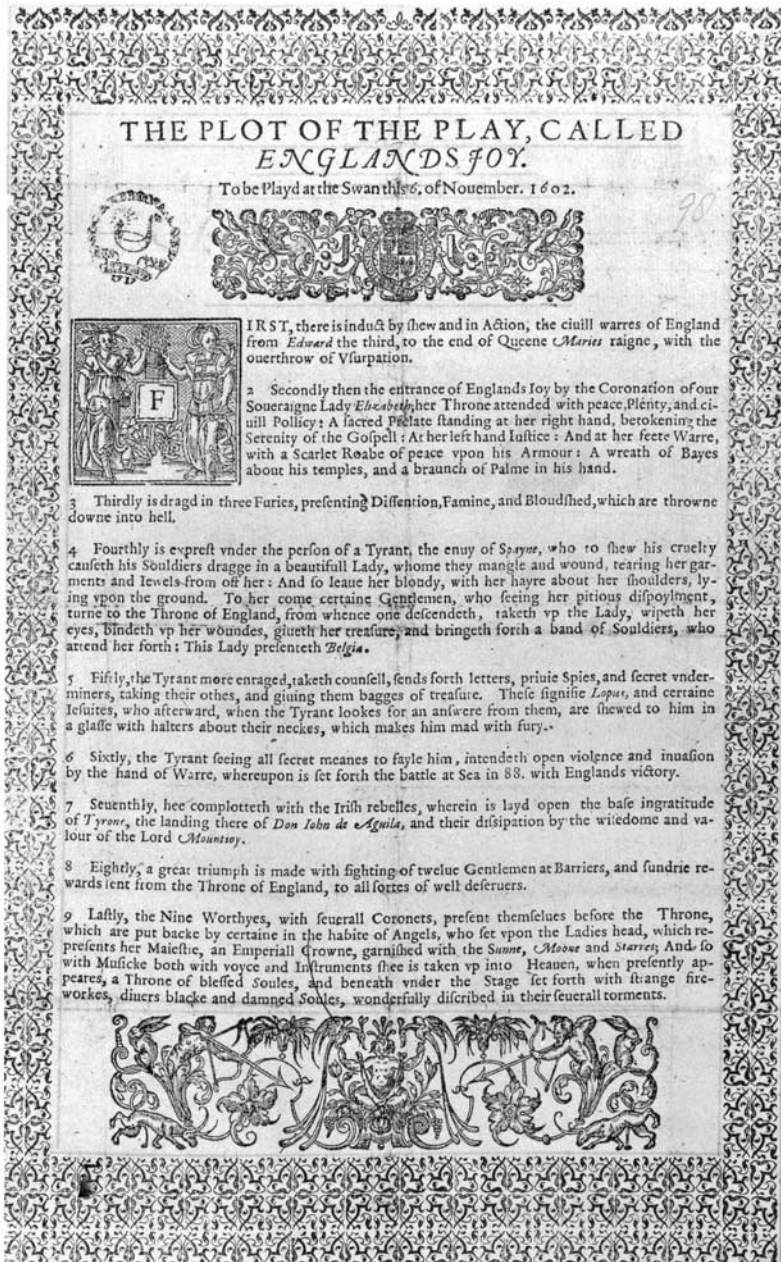 THE PLOT OF THE PLAY, CALLED
ENGLANDS JOY.
To be Playd at the Swan this 6. of Nouember. 1602.
98
FIRST, there is induct by shew and in Action, the ciuill warres of England
from Edward the third, to the end of Queene Maries raigne, with the
ouerthrow of Vsurpation.
2 Secondly then the entrance of Englands Ioy by the Coronation of our
Soueraigne Lady Elizabeth; her Throne attended with peace, Plenty, and ci-
uill Pollicy: A sacred Prelate standing at her right hand, betokening the
Serenity of the Gospell: At her left hand Iustice: And at her feete Warre,
with a Scarlet Roabe of peace vpon his Armour: A wreath of Bayes
about his temples, and a braunch of Palme in his hand.
3 Thirdly is dragd in three Furies, presenting Dissention, Famine, and Bloudshed, which are throwne
downe into hell.
4 Fourthly is exprest vnder the person of a Tyrant, the enuy of Spayne, who to shew his cruelty
causeth his Souldiers dragge in a beautifull Lady, whome they mangle and wound, tearing her gar-
ments and Iewels from off her: And so leaue her bloody, with her hayre about her shoulders, ly-
ing vpon the ground. To her come certaine Gentlemen, who seeing her pitious dispoylment,
turne to the Throne of England, from whence one descendeth, taketh vp the Lady, wipeth her
eyes, bindeth vp her woundes, giueth her treasure, and bringeth forth a band of Souldiers, who
attend her forth: This Lady presenteth Belgia.
5 Fiftly, the Tyrant more enraged, taketh counsell, sends forth letters, priuie Spies, and secret vnder-
miners, taking their othes, and giuing them bagges of treasure. These signifie Lopus, and certaine
Iesuites, who afterward, when the Tyrant lookes for an answere from them, are shewed to him in
a glasse with halters about their neckes, which makes him mad with fury.
6 Sixtly, the Tyrant seeing all secret meanes to fayle him, intendeth open violence and inuasion
by the hand of Warre, whereupon is set forth the battle at Sea in 88. with Englands victory.
7 Seuenthly, hee complotteth with the Irish rebelles, wherein is layd open the base ingratitude
of Tyrone, the landing there of Don Iohn de Aguila, and their dissipation by the wisedome and va-
lour of the Lord Mountioy.
8 Eightly, a great triumph is made with fighting of twelue Gentlemen at Barriers, and sundrie re-
wards sent from the Throne of England, to all sortes of well deseruers.
9 Lastly, the Nine Worthyes, with seuerall Coronets, present themselues before the Throne,
which are put backe by certaine in the habite of Angels, who set vpon the Ladies head, which re-
presents her Maiestie, an Emperiall Crowne, garnished with the Sunne, Moone and Starres; And so
with Musicke both with voyce and Instruments shee is taken vp into Heauen, when presently ap-
peares, a Throne of blessed Soules, and beneath vnder the Stage set forth with strange fire-
workes, diuers blacke and damned Soules, wonderfully discribed in their seuerall torments.